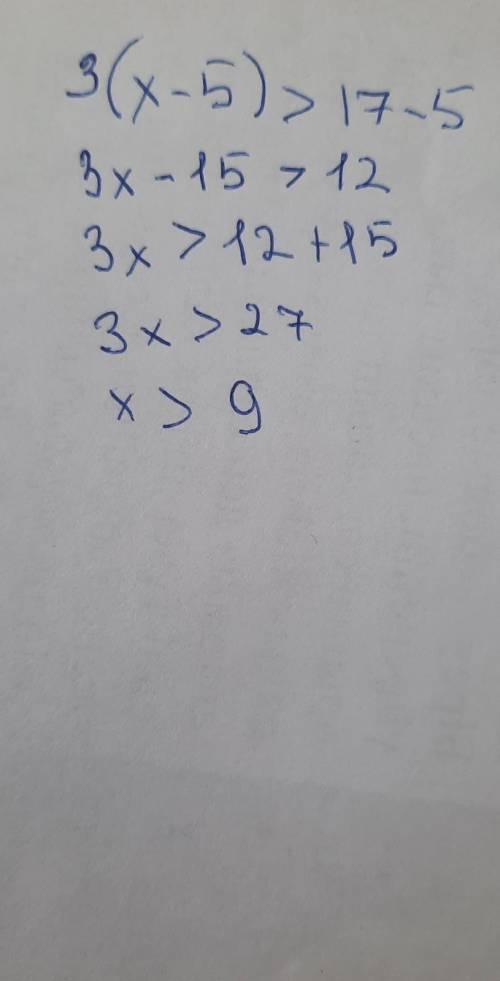 3(x-5)>17-5
3x-15>12
3x>12+15
3x>27
x>9